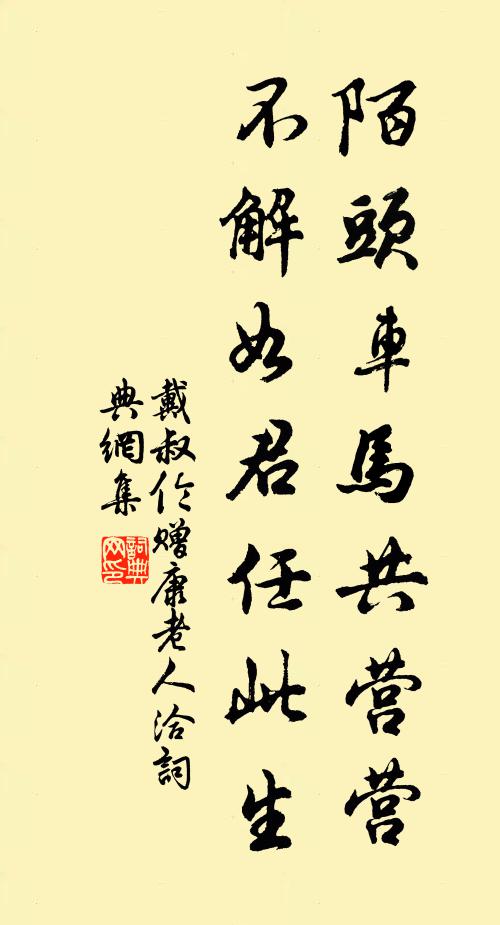 陌頭車馬共营营
不解如君任此生
戴叔伦赠康老人洽詞
典網集
詞典网印